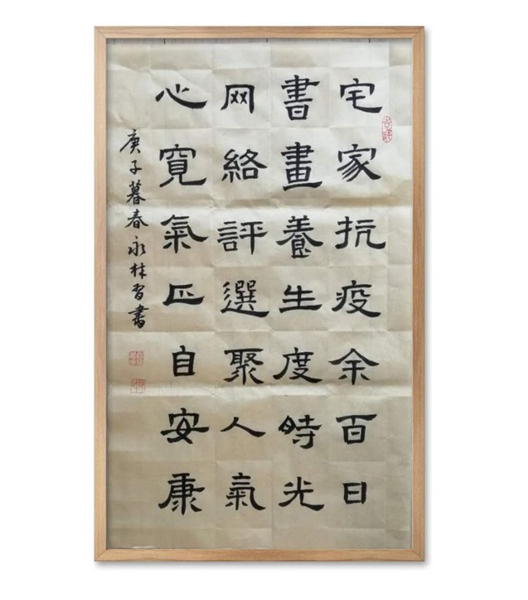 宅家抗疫余百日
書畫養生度時光
网絡評選聚人氣
心寬氣正自安康
庚子暮春永林習書